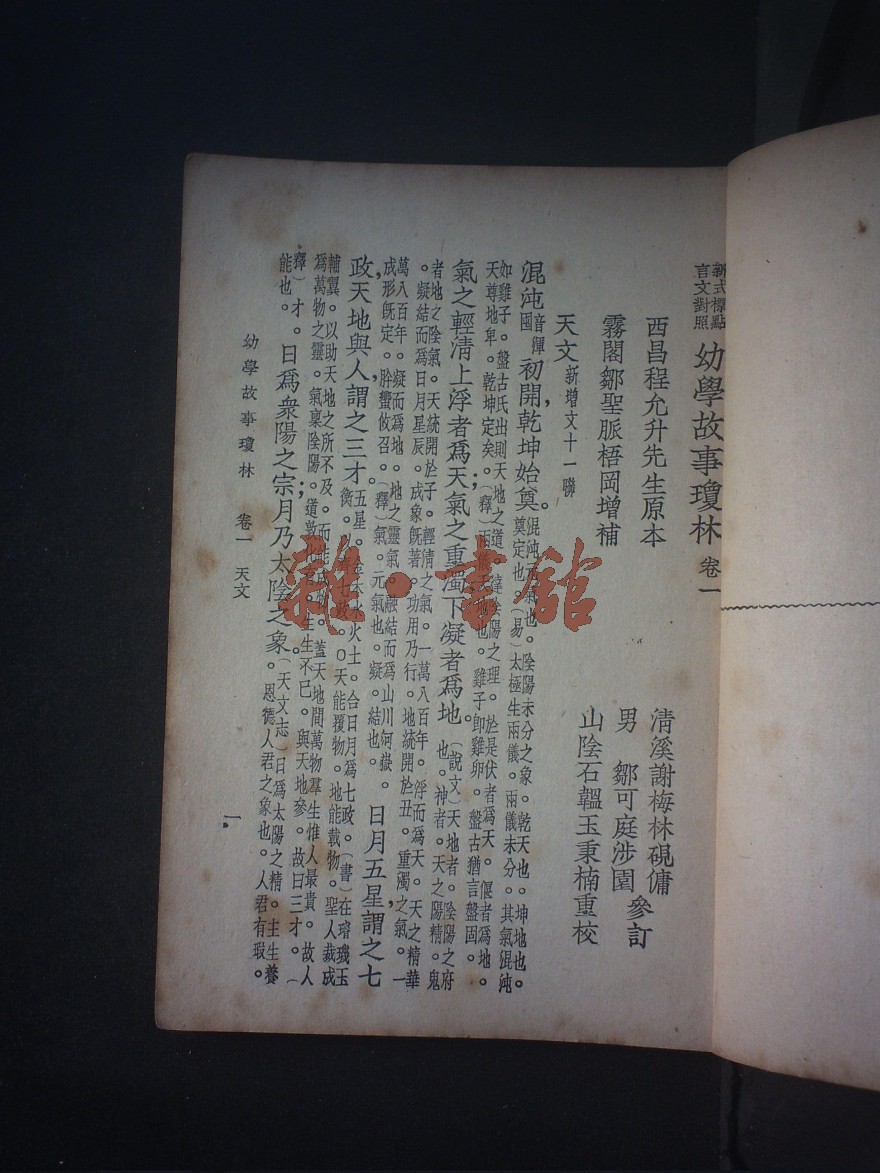 新式標點
言文對照
幼學故事瓊林 卷一
西昌程允升先生原本
清溪謝梅林硯傭
霧閣鄒聖脈梧岡增補
男 鄒可庭涉園 參訂
山陰石韞玉秉楠重校
天文 新增文十一聯
混沌 音渾 國 初開,乾坤始奠。混沌元氣也。陰陽未分之象。乾天也。坤地也。奠定也。(易)太極生兩儀。兩儀未分。其氣混沌
如雞子。盤古氏出則天地之道。達陰陽之理。於是伏者為天。偃者為地。天尊地卑。乾坤定矣。(釋)兩儀天地也。雞子即雞卵。盤古猶言盤固。
氣之輕清上浮者爲天;氣之重濁下凝者爲地。(說文)天地者。陰陽之府也。神者。天之陽精。鬼
者地之陰氣。天統開於子。輕清之氣。一萬八百年。浮而為天。天之精華。凝結而為日月星辰。成象既著。功用乃行。地統開於丑。重濁之氣。一
萬八百年。凝而為地。地之靈氣。融結而為山川河嶽。成形既定。肸蠁攸召。(釋)氣。元氣也。凝。結也。日月五星,謂之七
政,天地與人,謂之三才。五星。金木水火土。合日月為七政。(書)在璿璣玉衡。以齊七政。○天能覆物。地能載物。聖人裁成
輔翼。以助天地之所不及。而能成物。蓋天地間萬物羣生惟人最貴。故人為萬物之靈。氣稟陰陽。道敦化育。生生不已。與天地參。故曰三才。(
釋)才。能也。日爲衆陽之宗;月乃太陰之象。(天文志)日為太陽之精。主生養恩德人君之象也。人君有瑕。
幼學故事瓊林 卷一 天文 一
雜·書館